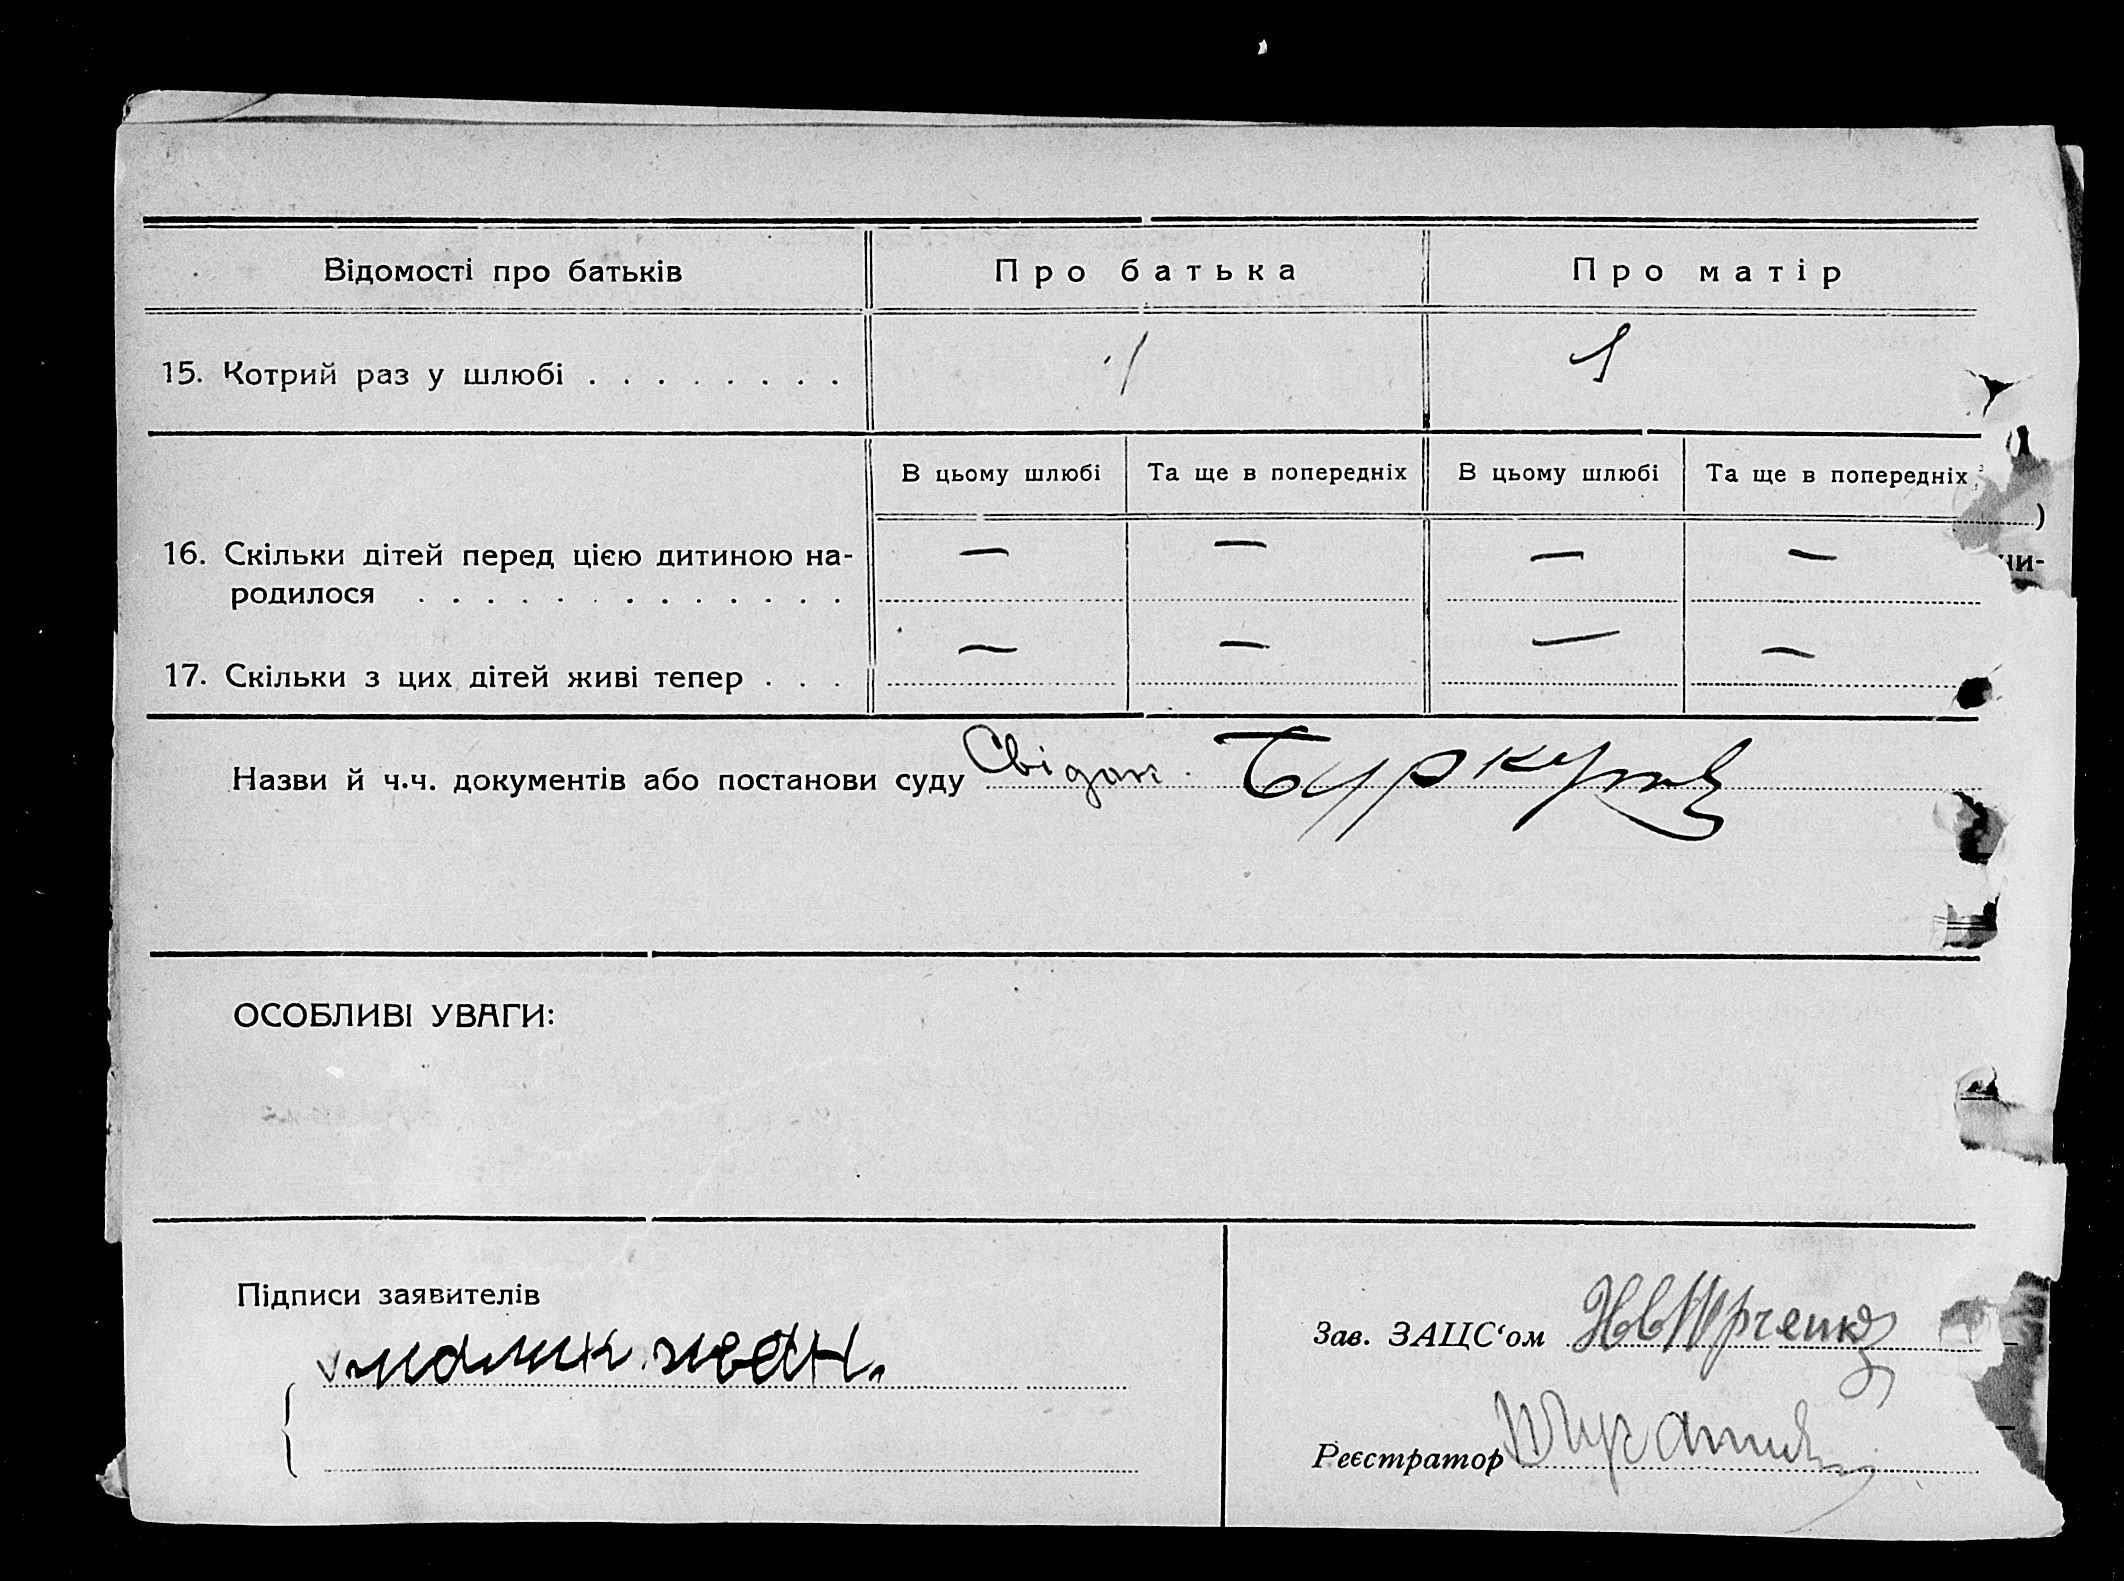 Відомості про батьків Про батька Про матір
15. Котрий раз у шлюбі . . . . . . . . 1 1
В цьому шлюбі Та ще в попередніх В цьому шлюбі Та ще в попередніх
)
16. Скільки дітей перед цією дитиною на- — — — —
чи-
родилося . . . . . . . . . . . . .
17. Скільки з цих дітей живі тепер . . . — — — —
Назви й ч.ч. документів або постанови суду Свідок
ОСОБЛИВІ УВАГИ:
Підписи заявителів
Зав. ЗАЦС‘ом
иван.
Реєстратор